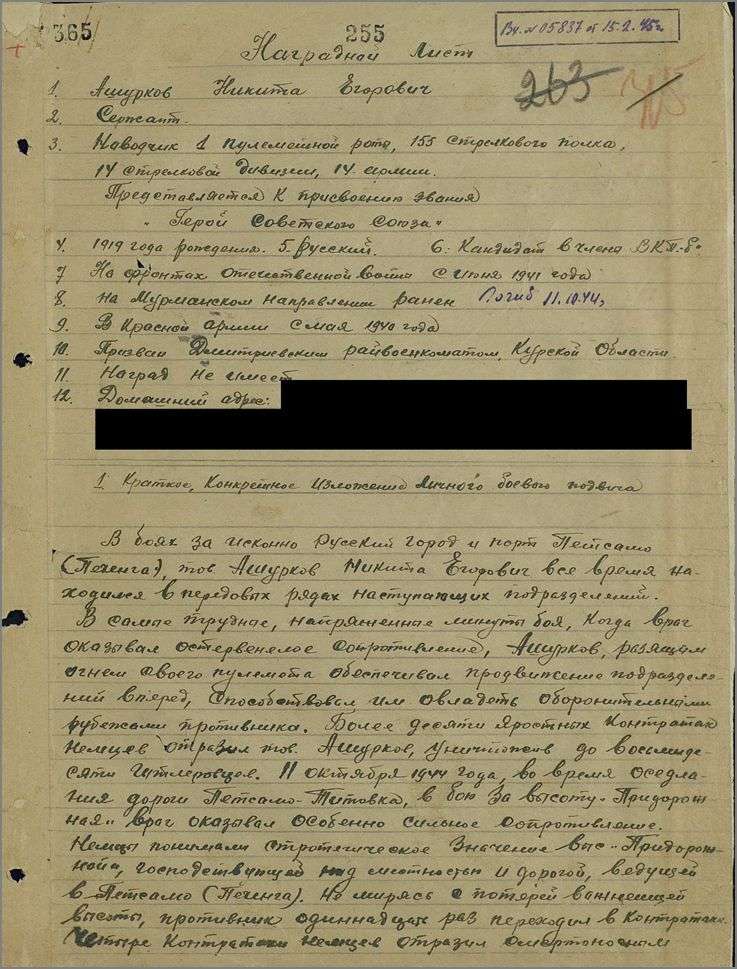 365
255
Вх. № 05837 от 15.2.45г
Наградной Лист
263
1. Ашурков Никита Егорович
2. Сержант.
3. Наводчик 1 пулеметной роты, 155 стрелкового полка,
14 стрелковой дивизии, 14 армии.
Представляется к присвоению звания
"Герой Советского Союза"
4. 1919 года рождения. 5. Русский. 6. Кандидат в члена ВКП-б"
7 На фронтах отечественной войны с июня 1941 года
8. на Мурманском направлении ранен Погиб 11.10.44г
9. В Красной армии с мая 1940 года
10. Призван Дмитриевским райвоенкоматом, Курской области.
11. Наград не имеет
12. Домашний адрес:
1 Краткое, конкретное изложение личного боевого подвига
В боях за исконно русский город и порт Петсамо
(Печенга), тов. Ашурков Никита Егорович все время на-
ходился в передовых рядах наступающих подразделений.
В самые трудные, напряженные минуты боя, когда враг
оказывал остервенелое сопротивление, Ашурков, разящим
огнем своего пулемета обеспечивал продвижение подразделе-
ний вперед, способствовал им овладеть оборонительными
рубежами противника. Более десяти яростных контратак
немцев отразил тов. Ашурков, уничтожив до восьмиде-
сяти гитлеровцев. 11 октября 1944 года, во время оседла-
ния дороги Петсамо-Титовка, в бою за высоту "Придорож-
ная" враг оказывал особенно сильное сопротивление.
Немцы понимали стратегическое значение выс "Придорож-
ной", господствующей над местностью и дорогой, ведущей
в Петсамо (Печенга). Не мирясь с потерей важнейшей
высоты, противник одиннадцать раз переходил в контратаки.
Четыре контратаки немцев отразил смертоносным